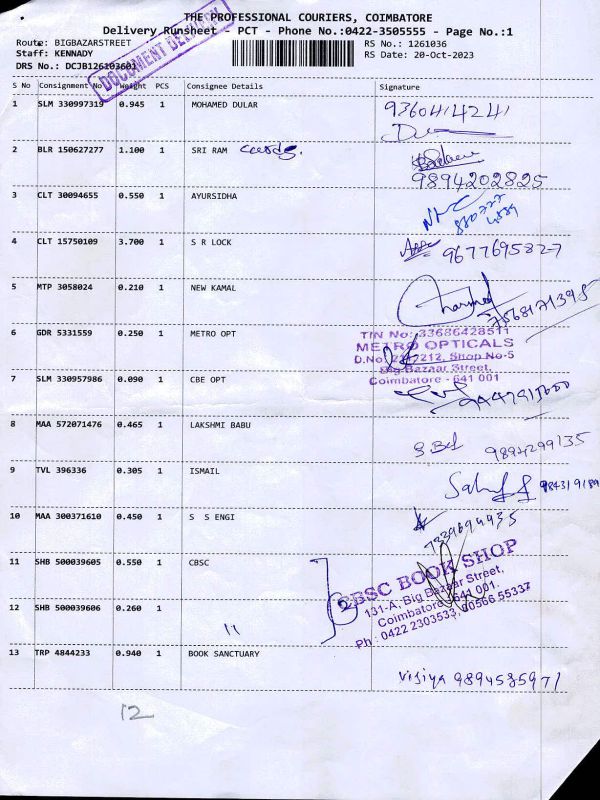 THE PROFESSIONAL COURIERS, COIMBATORE
Delivery Runsheet - PCT - Phone No.:0422-3505555 - Page No.:1
Route: BIGBAZARSTREET RS No.: 1261036
Staff: KENNADY RS Date: 20-Oct-2023
DRS No.: DCJB126103601
DOCUMENT DELIVERY
S No Consignment No Weight PCS Consignee Details Signature
1 SLM 330997319 0.945 1 MOHAMED DULAR 9360414241
2 BLR 150627277 1.100 1 SRI RAM cards.
9894202825
3 CLT 30094655 0.550 1 AYURSIDHA
4 CLT 15750109 3.700 1 S R LOCK 9677695827
5 MTP 3058024 0.210 1 NEW KAMAL
7568171395
6 GDR 5331559 0.250 1 METRO OPT
TIN No: 33686428511
METRO OPTICALS
D.No. 212, Shop No-5
Big Bazaar Street,
Coimbatore - 641 001
7 SLM 330957986 0.090 1 CBE OPT
8 MAA 572071476 0.465 1 LAKSHMI BABU 9894299135
9 TVL 396336 0.305 1 ISMAIL
10 MAA 300371610 0.450 1 S S ENGI
7339694935
11 SHB 500039605 0.550 1 CBSC
12 SHB 500039606 0.260 1 "
CBSC BOOK SHOP
131-A, Big Bazaar Street,
Coimbatore - 641 001.
Ph : 0422 2303533, 00566 55337
13 TRP 4844233 0.940 1 BOOK SANCTUARY Vijiya 9894585971
12